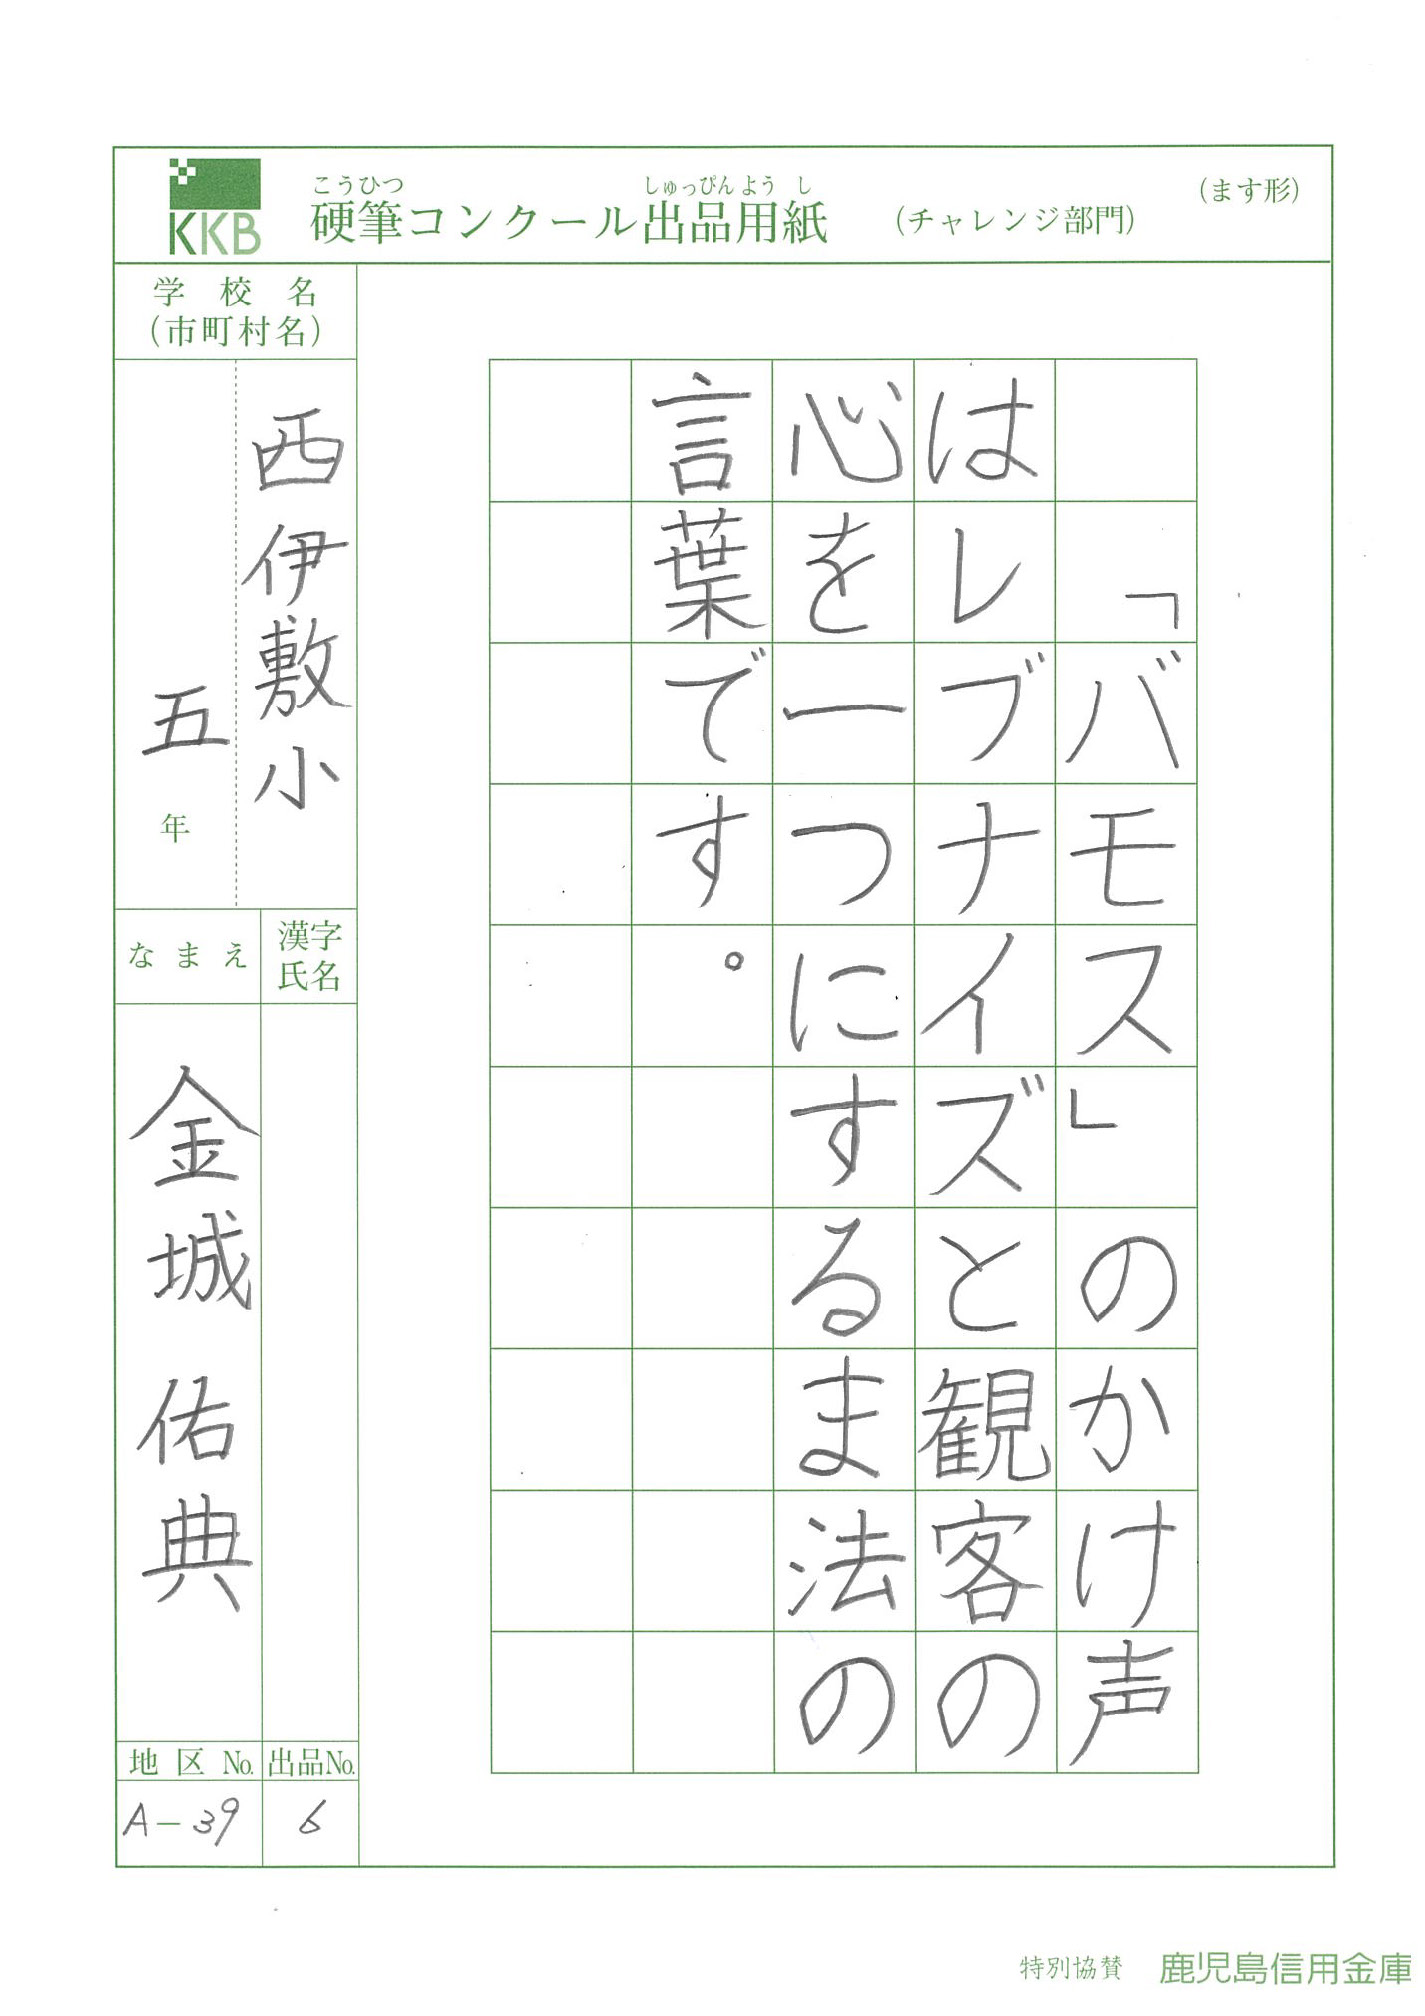 KKB
こうひつ しゅっぴんようし
硬筆コンクール出品用紙 (チャレンジ部門) (ます形)
「バモス」のかけ声
はレブナイズと観客の
心を一つにするま法の
言葉です。
学校名
(市町村名)
西伊敷小
五年
漢字氏名
なまえ
金城佑典
地区No.
A-39
出品No.
6
特別協賛 鹿児島信用金庫